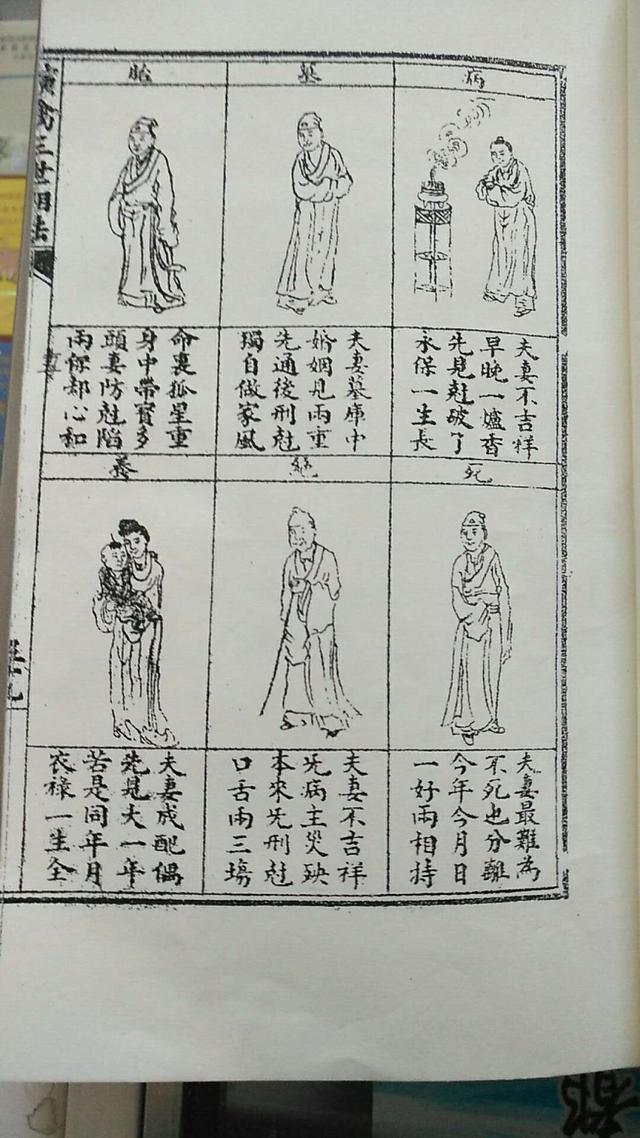 病
夫妻不吉祥
早晚一爐香
先見尅破了
永保一生長
墓
夫妻墓庫中
婚姻見兩重
先通後刑尅
獨自做家風
胎
命裏孤星重
身中帶寶多
頭妻防尅陷
兩保却心和
死
夫妻最難為
不死也分離
今年今月日
一好兩相持
絕
夫妻不吉祥
先病主災殃
本來先刑尅
口舌兩三塲
養
夫妻成配偶
先見大一年
若是同年月
衣祿一生全
演禽三世相法
都